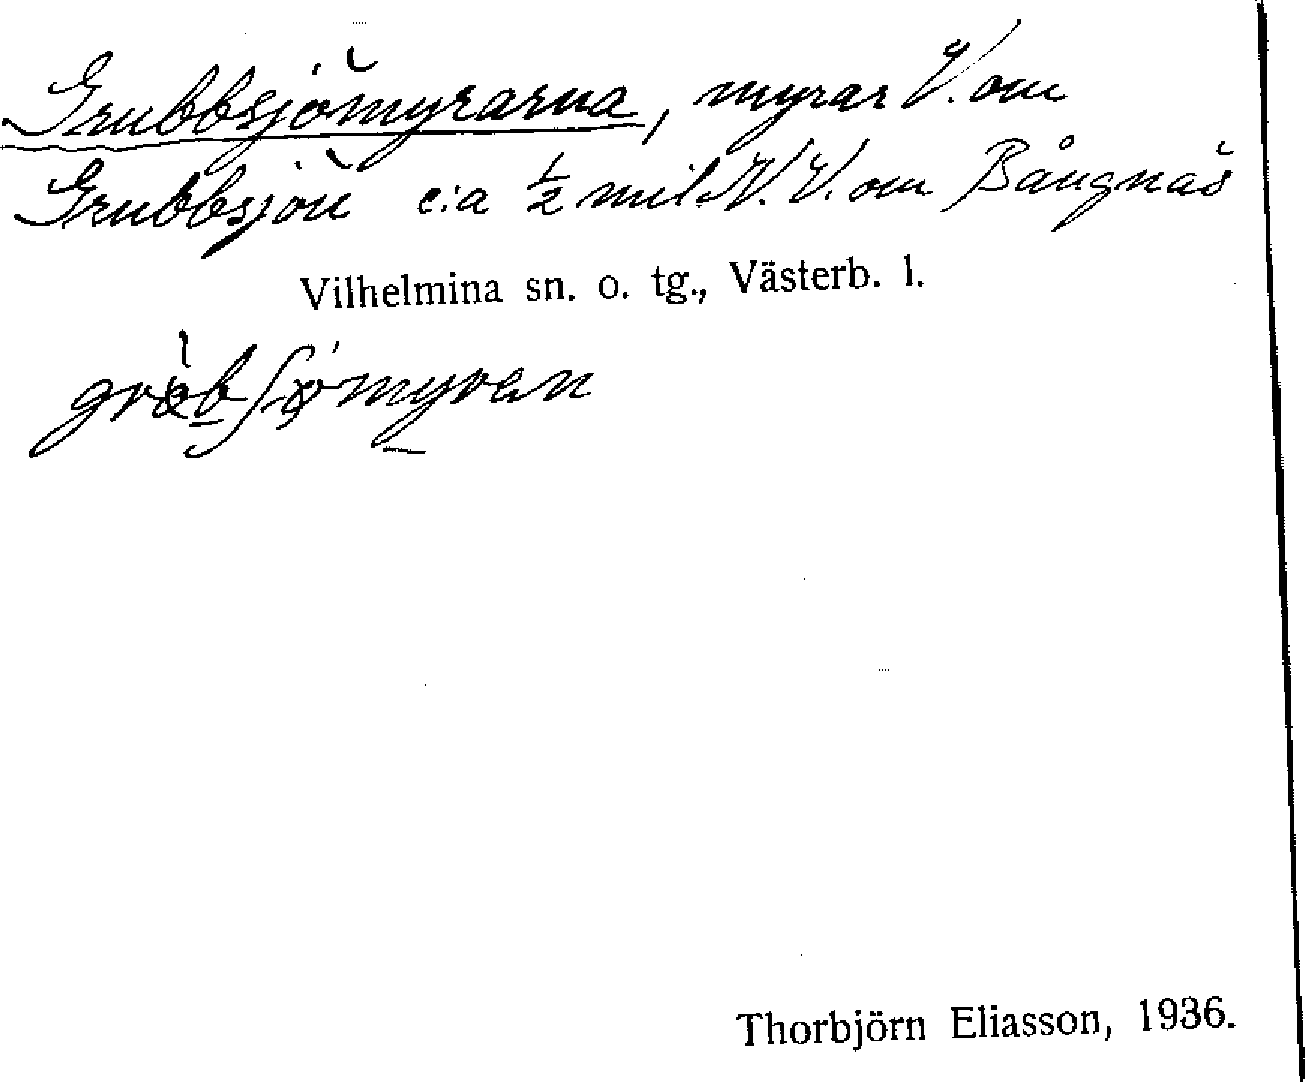 Grubbsjömyrarna, myrar V. om
Grubbsjön c:a ½ mil N.V. om Bångnäs
Vilhelmina sn. o. tg., Västerb. l.
Thorbjörn Eliasson, 1936.